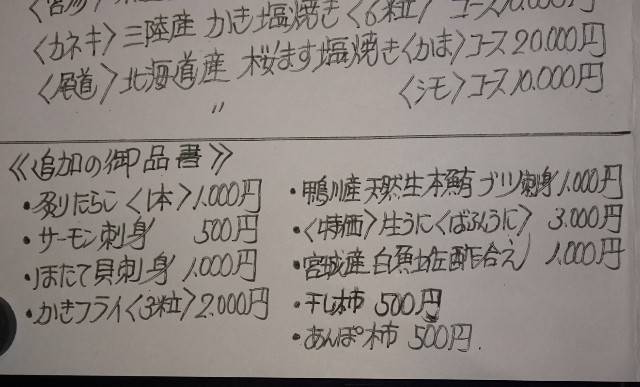 三陸産 かき塩焼き〈6粒〉コース10.000円
〈カネキ〉三陸産 かき塩焼き〈6粒〉コース
〈尾道〉北海道産 桜ます塩焼き〈かま〉コース20.000円
〃 〈シモ〉コース10.000円
《追加の御品書》
・炙りたらこ〈1本〉1.000円
・サーモン刺身 500円
・ほたて貝刺身 1.000円
・かきフライ〈3粒〉2.000円
・鴨川産天然生本鮪ブツ刺身1.000円
・〈特価〉生うに〈ばふんうに〉3.000円
・宮城産白魚土佐酢合え 1.000円
・干し柿 500円
・あんぽ柿 500円.